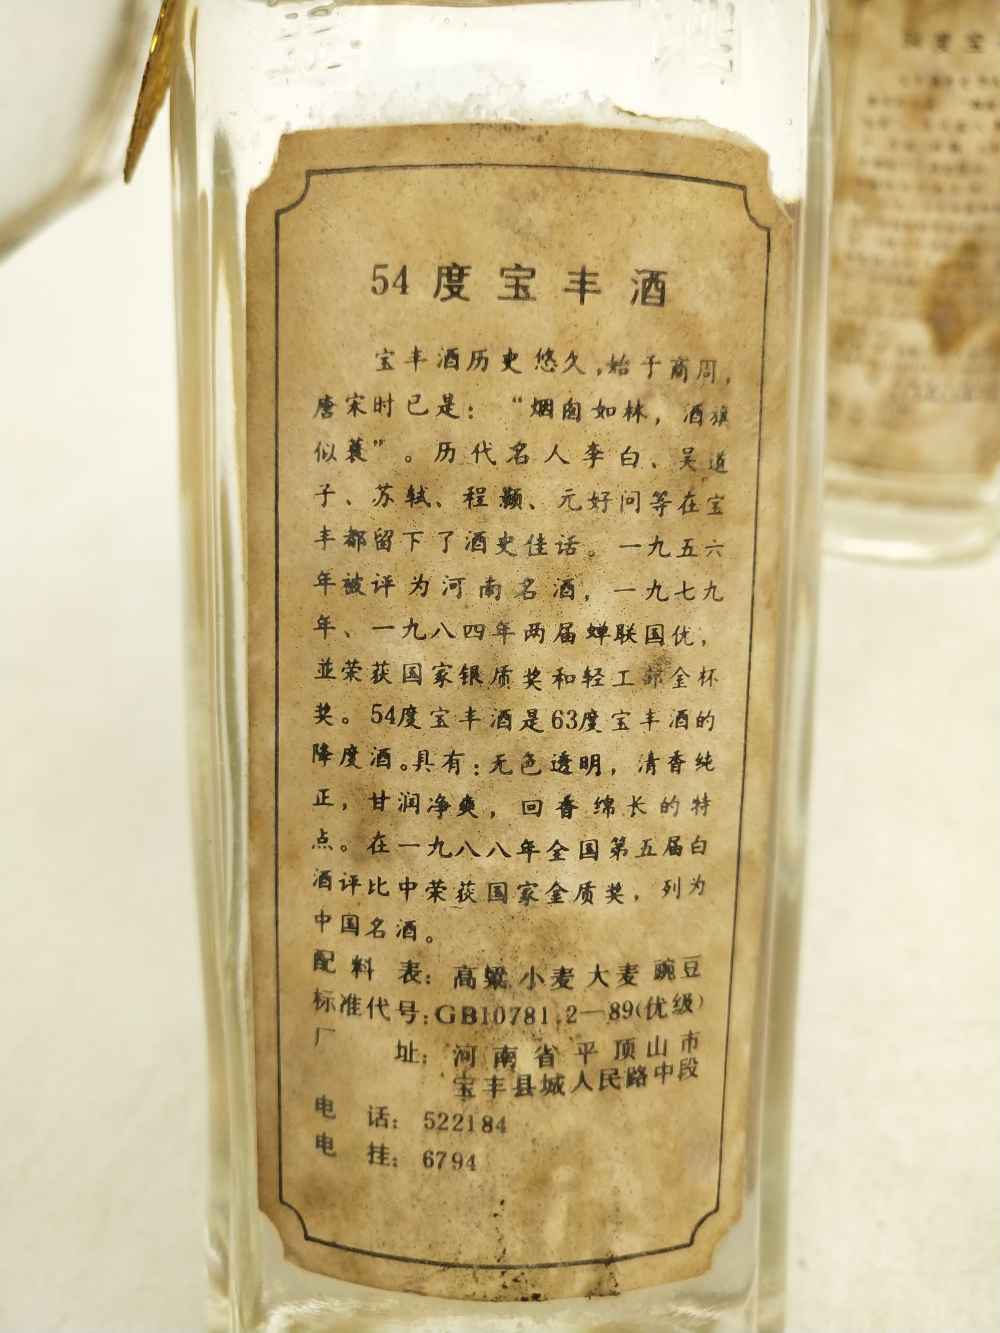 54度宝丰酒
宝丰酒历史悠久,始于商周,
唐宋时已是：“烟囱如林，酒旗
似蓑”。历代名人李白、吴道
子、苏轼、程颢、元好问等在宝
丰都留下了酒史佳话。一九五六
年被评为河南名酒，一九七九
年、一九八四年两届蝉联国优，
並荣获国家银质奖和轻工部金杯
奖。54度宝丰酒是63度宝丰酒的
降度酒。具有：无色透明，清香纯
正，甘润净爽，回香绵长的特
点。在一九八八年全国第五届白
酒评比中荣获国家金质奖，列为
中国名酒。
配料表：高粱小麦大麦豌豆
标准代号：GB10781.2—89(优级)
厂址：河南省平顶山市
宝丰县城人民路中段
电话：522184
电挂：6794